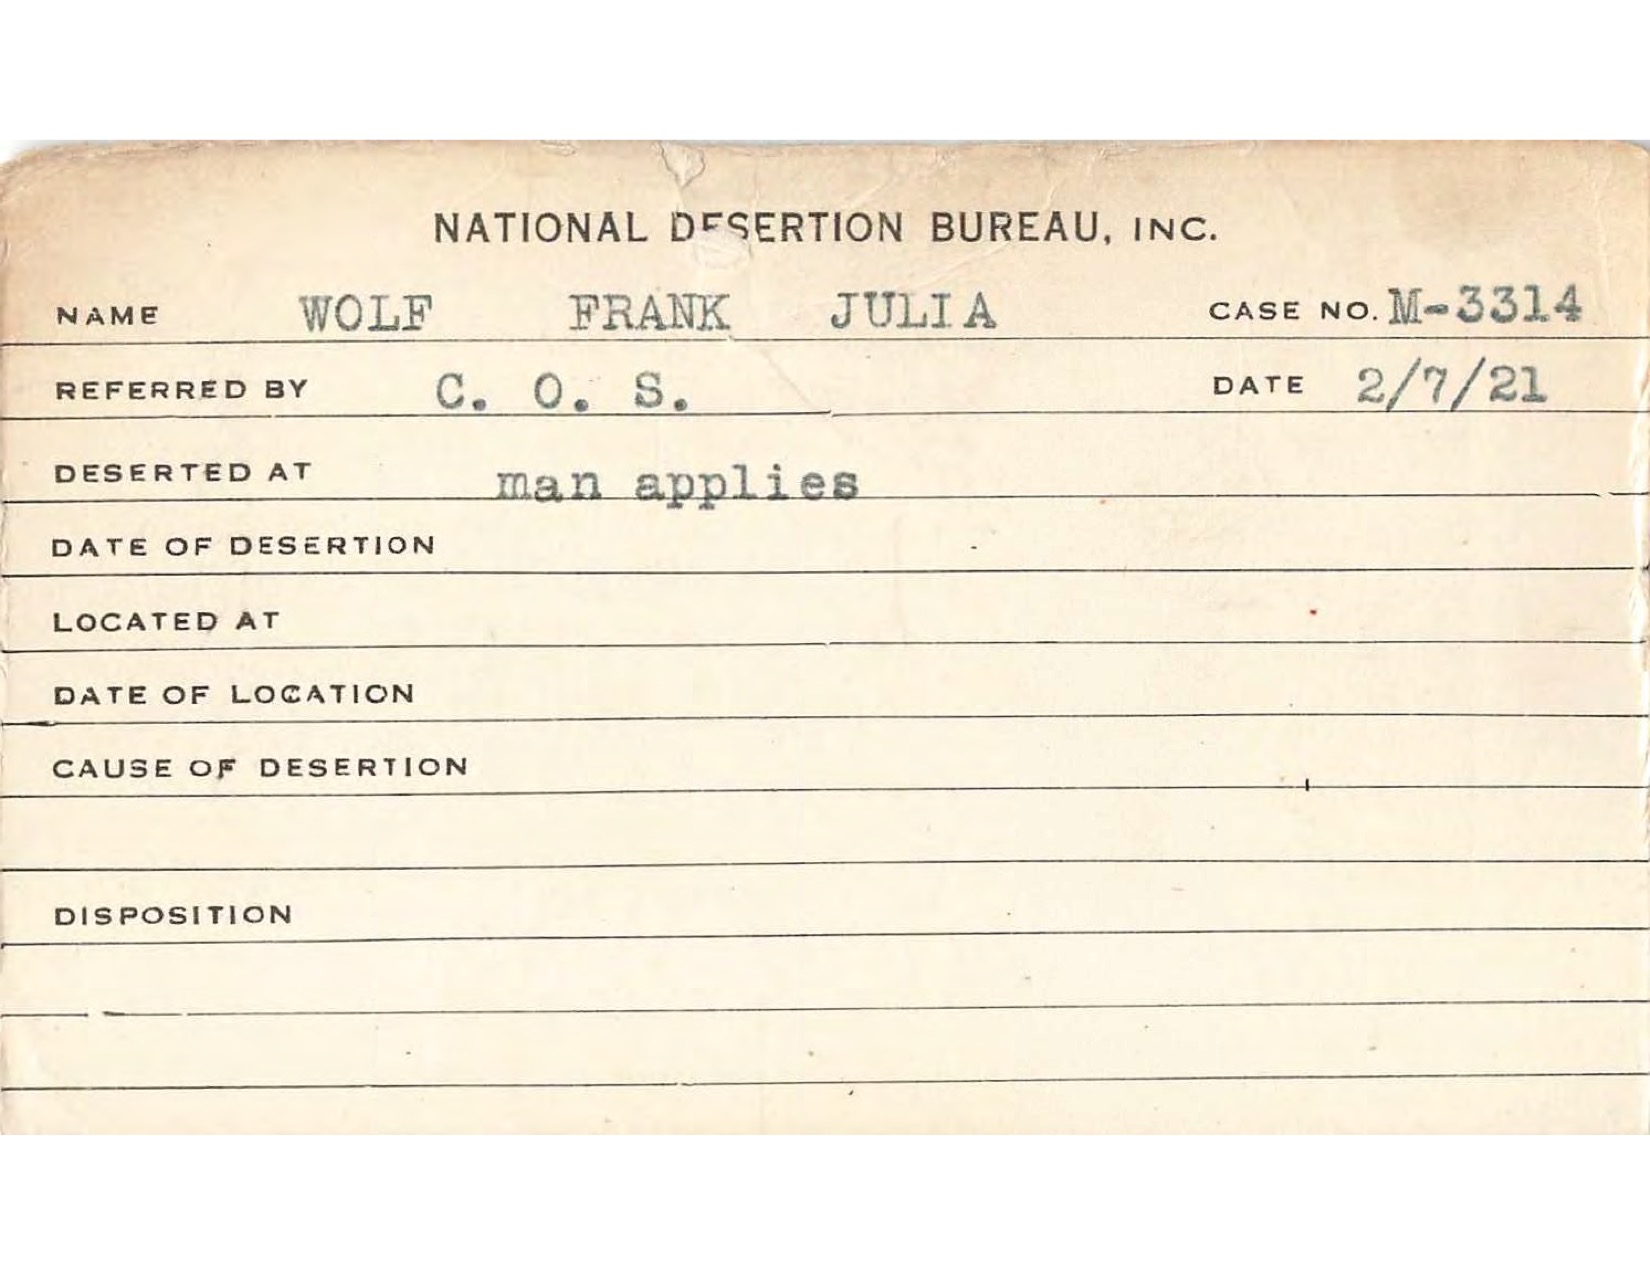 NATIONAL DESERTION BUREAU, INC.
NAME WOLF FRANK JULIA CASE NO. M-3314
REFERRED BY C. O. S. DATE 2/7/21
DESERTED AT man applies
DATE OF DESERTION
LOCATED AT
DATE OF LOCATION
CAUSE OF DESERTION
DISPOSITION